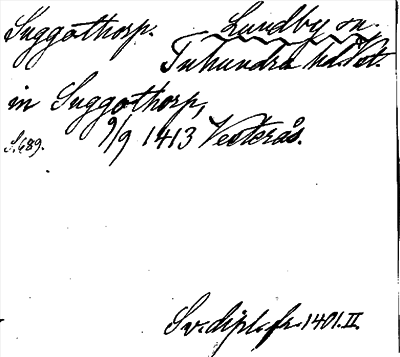 Suggothorp. Lundby sn.
Tuhundra hd. Vstm.
in Suggothorp,
9/9 1413 Vesterås.
S. 689.
Sv. dipl. fr. 1401. II.